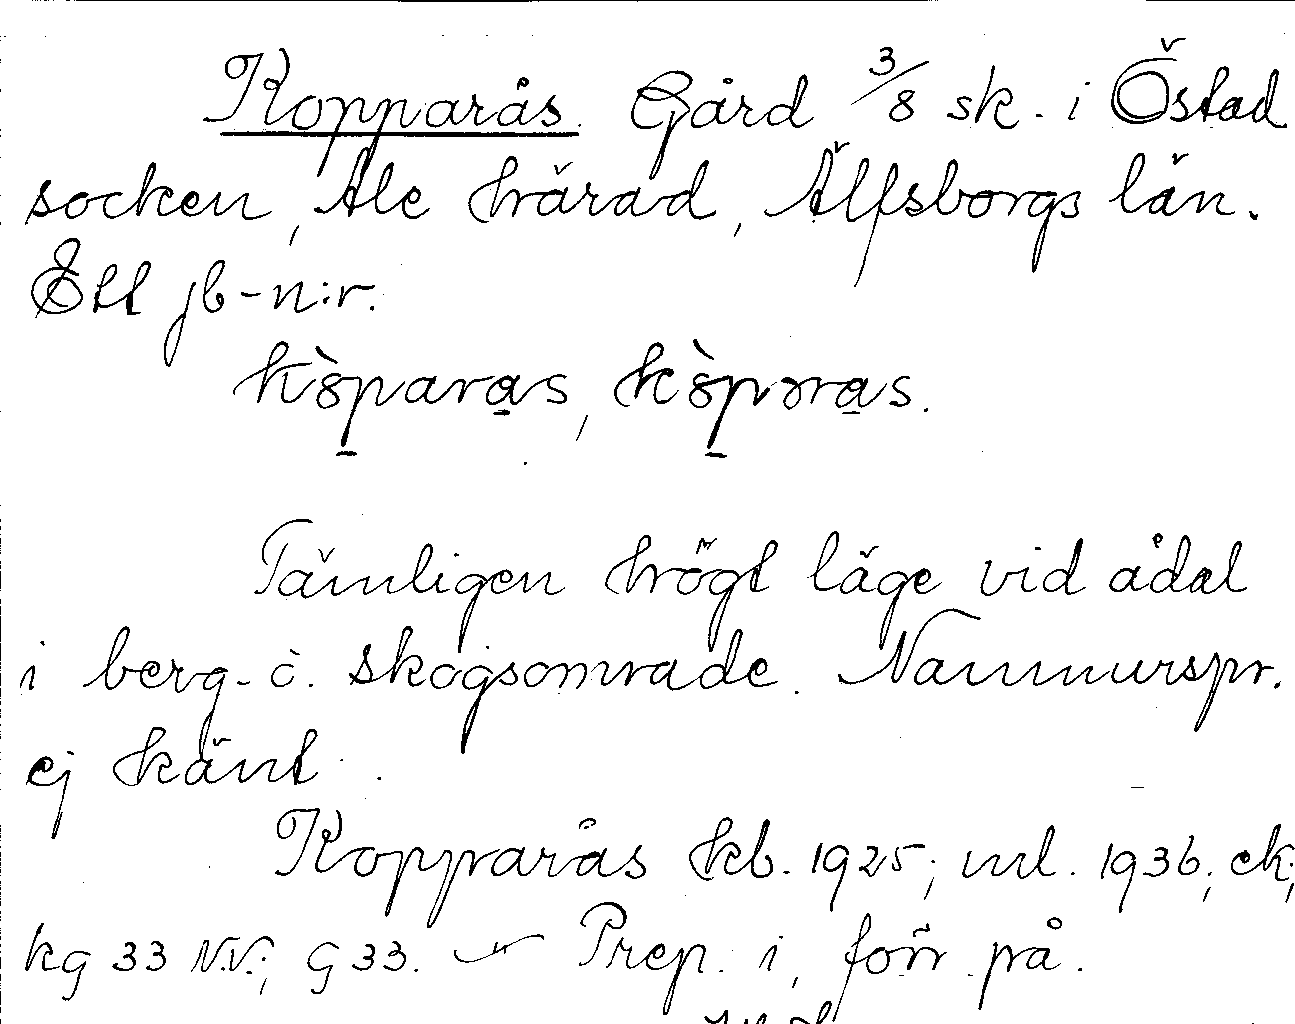 Kopparås. Gård 3/8 sk. i Östad
socken, Ale härad, Älfsborgs län.
Ett jb-n:r.
kòparas, kòpəras.
Tämligen högt läge vid ådal
i berg- o. skogsområde. Namnurspr.
ej känt.
Kopparås kb. 1925; ml. 1936; ek;
kg 33 N.V.; G 33. — Prep. i, förr på.